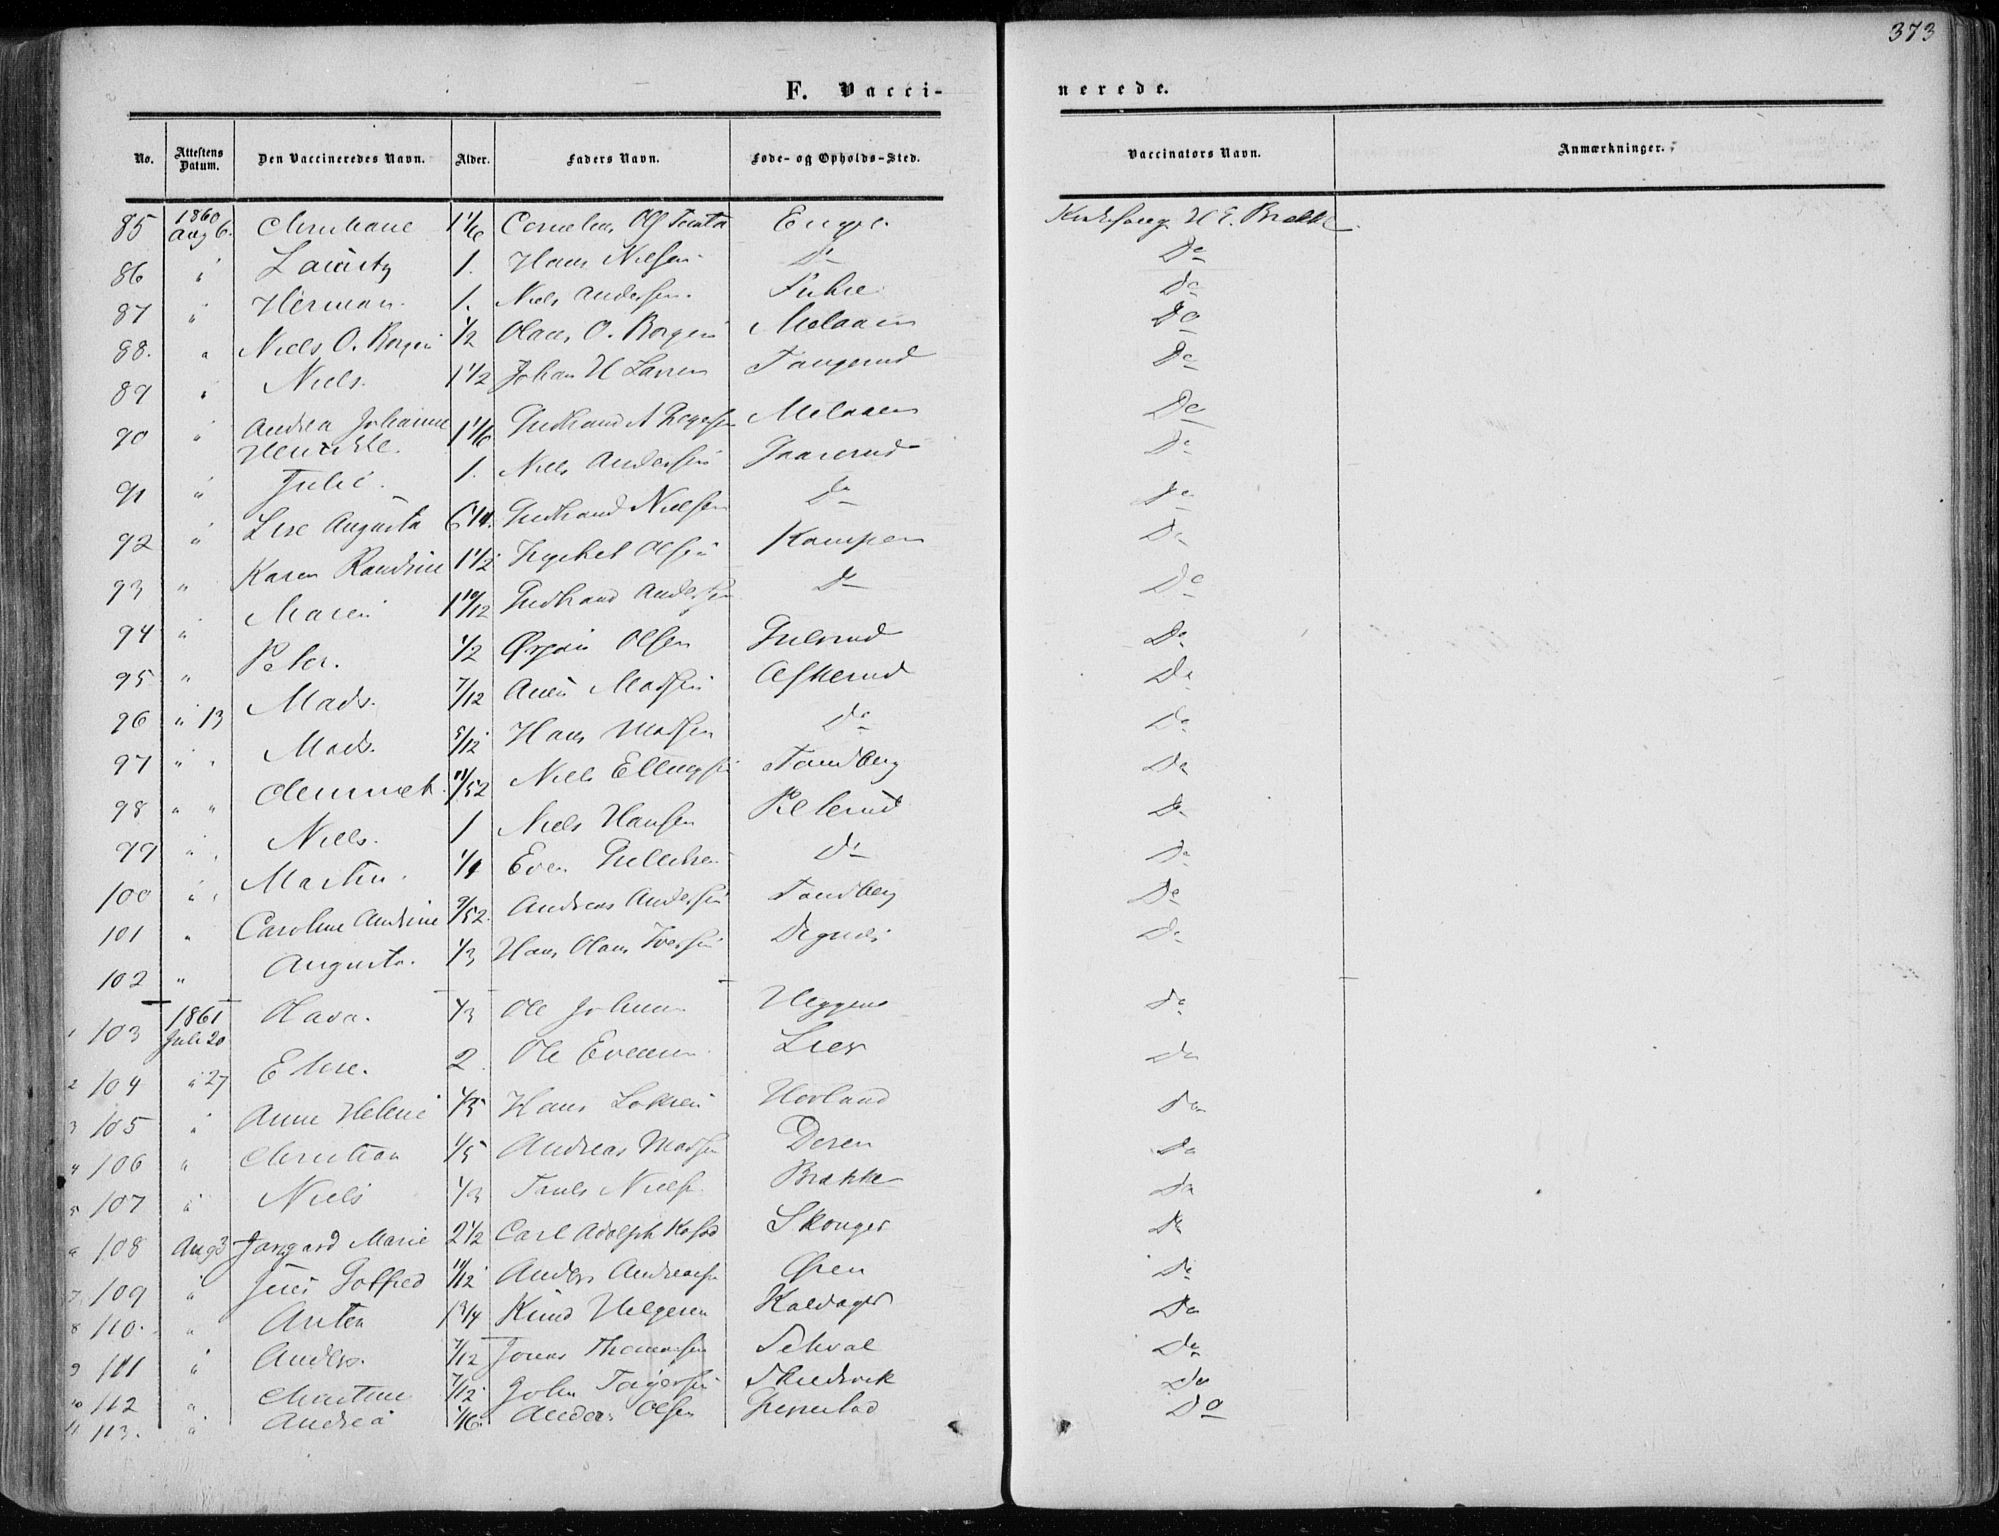 373
F. Vacci-
nerede.
No. Attestens Datum. Den Vaccineredes Navn. Alder. Faders Navn. Føde- og Opholds-Sted. Vaccinators Navn. Anmærkninger.
85 1860 Aug 6. Christiane 1 1/6 Cornelius Enge. Kirkesang. H E. Brakke.
86 " Lauritz 1. Hans Nielsen Do Do
87 " Herman. 1. Niels Andersen. Do
88. " Niels O. Borgen 1/2 Olaus O. Borgen Melaaen Do
89 " Niels. 1 1/2 Johan H Larsen Tangerud Do
90 " Andrea Johanne 1 1/6 Gudbrand A Melaaen Do
91 " Julie. 1. Niels Andersen Gaarerud Do
92 " Lise Augusta 6 1/4. Gudbrand Nielsen Do Do
93 " Karen Randine 1 1/2 Olsen Kampen Do
94 " Maren 1 10/12 Gudbrand Andersen Do Do
95 " Peter. 1/2 Ørjan Olsen Gulerud Do
96 " 13 Mads. 7/12 Madsen Askerud Do
97 " " Mads. 5/12 Hans Madsen Do Do
98 " " 11/52 Niels Ellingsen Tandberg Do
99 " " Niels. 1 Niels Hansen Pelerud Do
100 " " Martin. 1/4 Even Gulliksen Do Do
101 " Caroline Andrine 9/52. Andreas Andersen Tandberg Do
102 " Augusta. 1/3 Hans Olaus Iversen Do
1 103 1861 Juli 20 Olava. 1/3 Ole Johnsen Heggen Do
2 104 " 27 Elise. 2 Ole Evensen Lier Do
3 105 " Anne Helene 1/3 Hans Hovland Do
4 106 " Christian 1/5 Andreas Madsen Doren Do
5 107 " Niels 1/3 Truls Nielsen Brakke Do
6 108 Aug 3 Marie 2 1/2 Carl Adolph Skouger Do
7 109 " Jens Gotfred 11/12 Anders Andreasen Øren Do
8 110. " Anton 1 3/4 Knud Helgesen Kaldager Do
9 111 " Anders. 7/12 Jonas Thomassen Sehval Do
10 112 " Christine 7/12 John Do
11 113. " Andrea 1/16 Anders Olsen Do